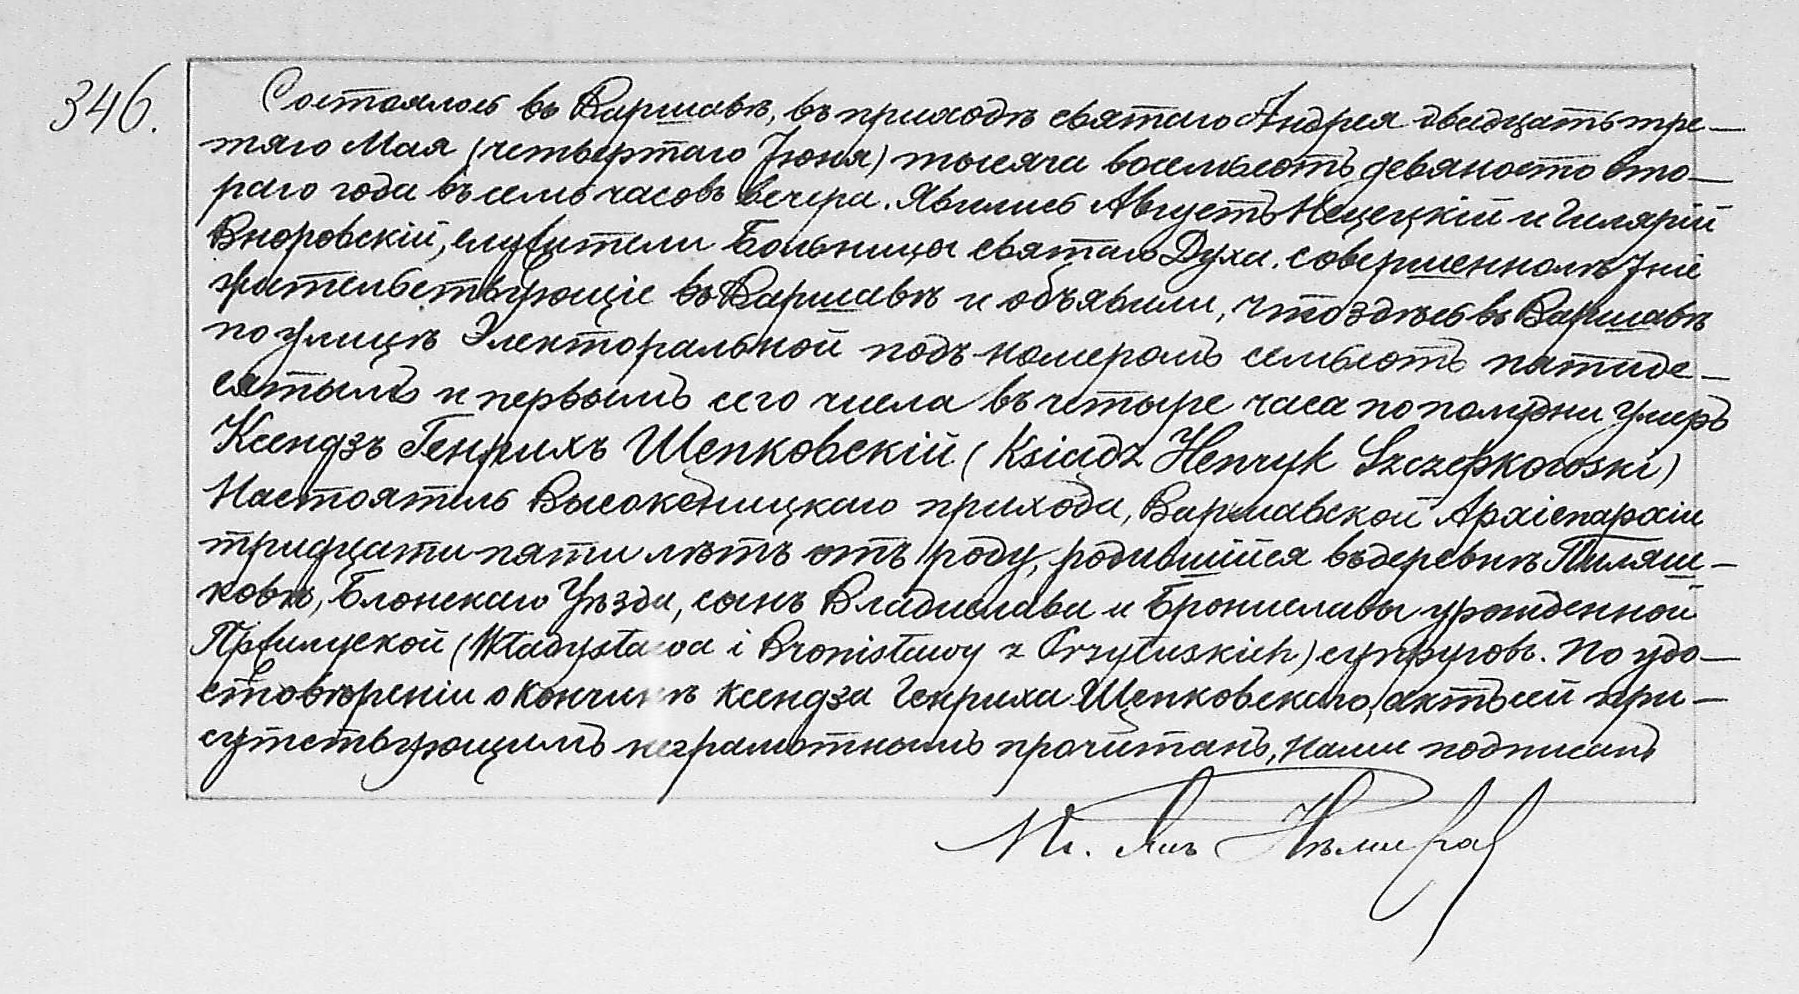 346.
Состоялось въ Варшавѣ, въ приходѣ святаго Андрея двадцать тре-
тяго Мая (четвертаго Іюня) тысяча восемьсотъ девяносто вто-
раго года въ семь часовъ вечера. Явились Августъ Нецецкій и Гилярій
Вноровскій, служители Больницы святаго Духа, совершеннолѣтніе
жительствующіе въ Варшавѣ и объявили, что здѣсь въ Варшавѣ
по улицѣ Электоральной подъ номеромъ семьсотъ пятиде-
сятымъ и первымъ сего числа въ четыре часа по полудни умеръ
Ксендзъ Генрихъ Щепковскій (Ksiądz Henryk Szczepkowski)
Настоятель Высокеницкаго прихода, Варшавской Архіепархіи
тридцати пяти лѣтъ отъ роду, родившійся въ деревнѣ Пиляш-
ковѣ, Блонскаго Уѣзда, сынъ Владислава и Брониславы урожденной
Пржилуской (Władysława i Bronisławy z Przyłuskich) супруговъ. По удо-
стовѣреніи о кончинѣ ксендза Генриха Щепковскаго, актъ сей при-
сутствующимъ неграмотнымъ прочитанъ, нами подписанъ